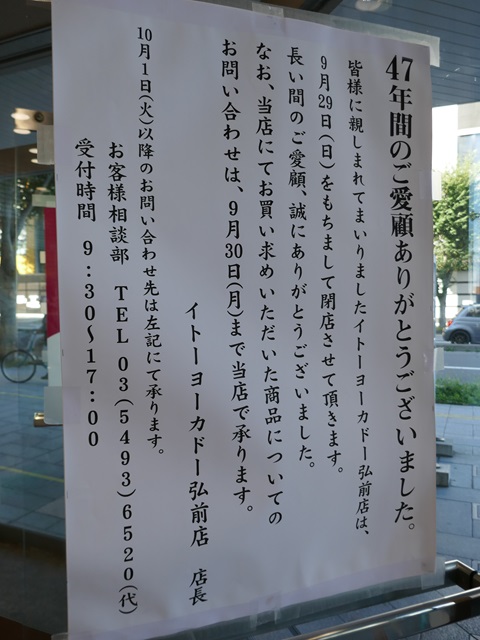 47年間のご愛顧ありがとうございました。
皆様に親しまれてまいりましたイトーヨーカドー弘前店は、
9月29日(日)をもちまして閉店させて頂きます。
長い間のご愛顧、誠にありがとうございました。
なお、当店にてお買い求めいただいた商品についての
お問い合わせは、9月30日(月)まで当店で承ります。
イトーヨーカドー弘前店 店長
10月1日(火)以降のお問い合わせ先は左記にて承ります。
お客様相談部 TEL 03(5493)6520(代)
受付時間 9:30〜17:00